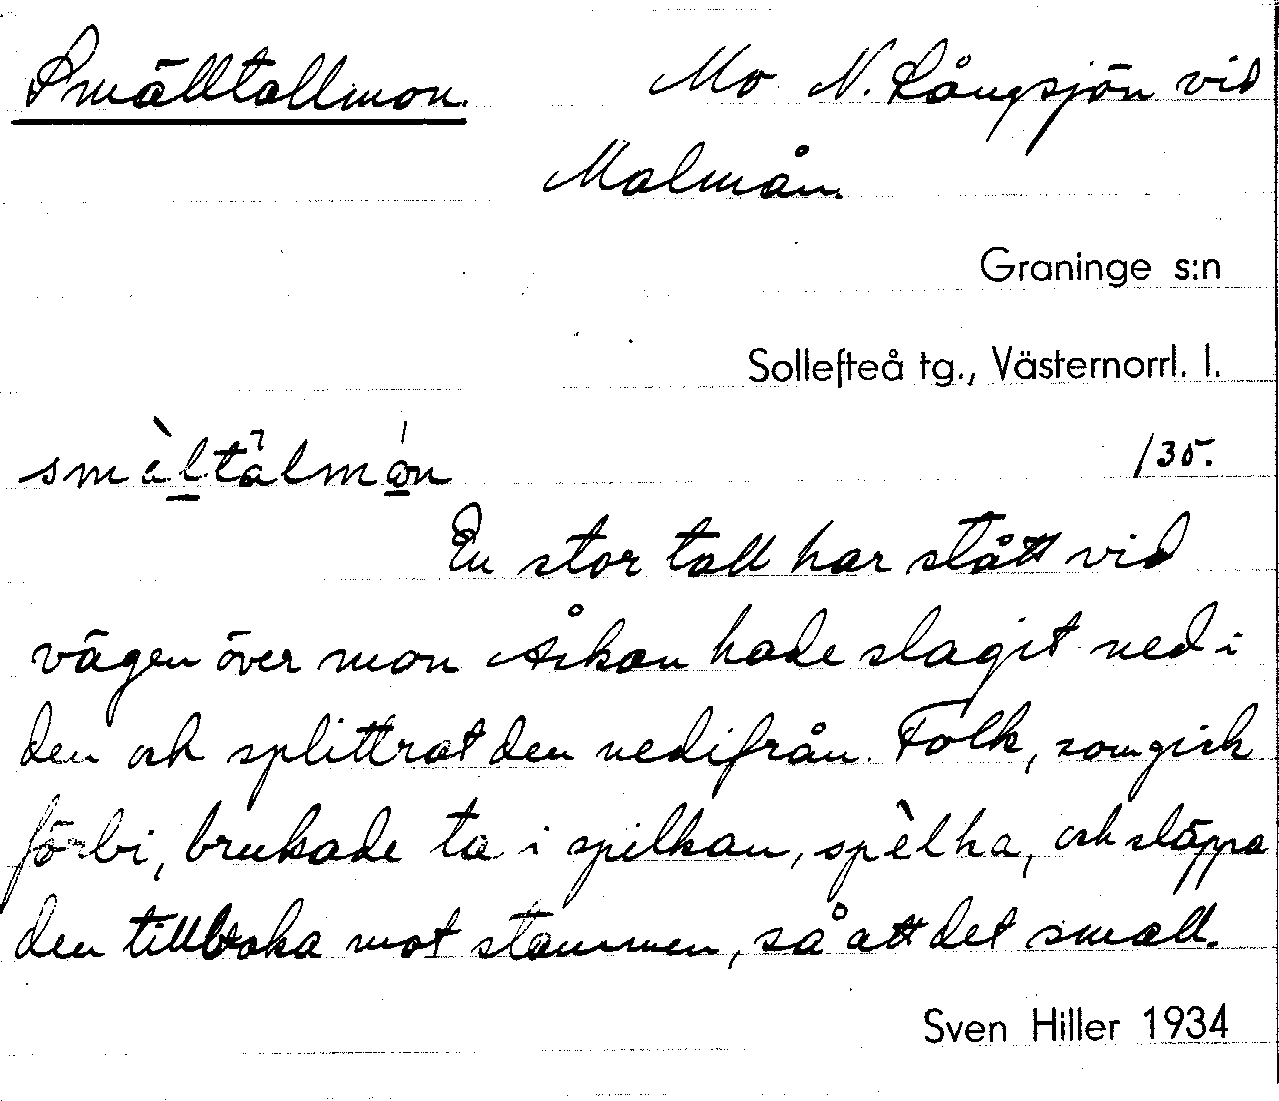 Smälltallmon. Mo N. Långsjön vid
Malmån.
Graninge s:n
Sollefteå tg., Västernorrl. l.
smèltålmón /35.
En stor tall har stått vid
vägen över mon Åskan hade slagit ned i
den och splittrat den nedifrån. Folk, som gick
förbi, brukade ta i spilkan, spèlka, och släppa
den tillbaka mot stammen, så att det small.
Sven Hiller 1934